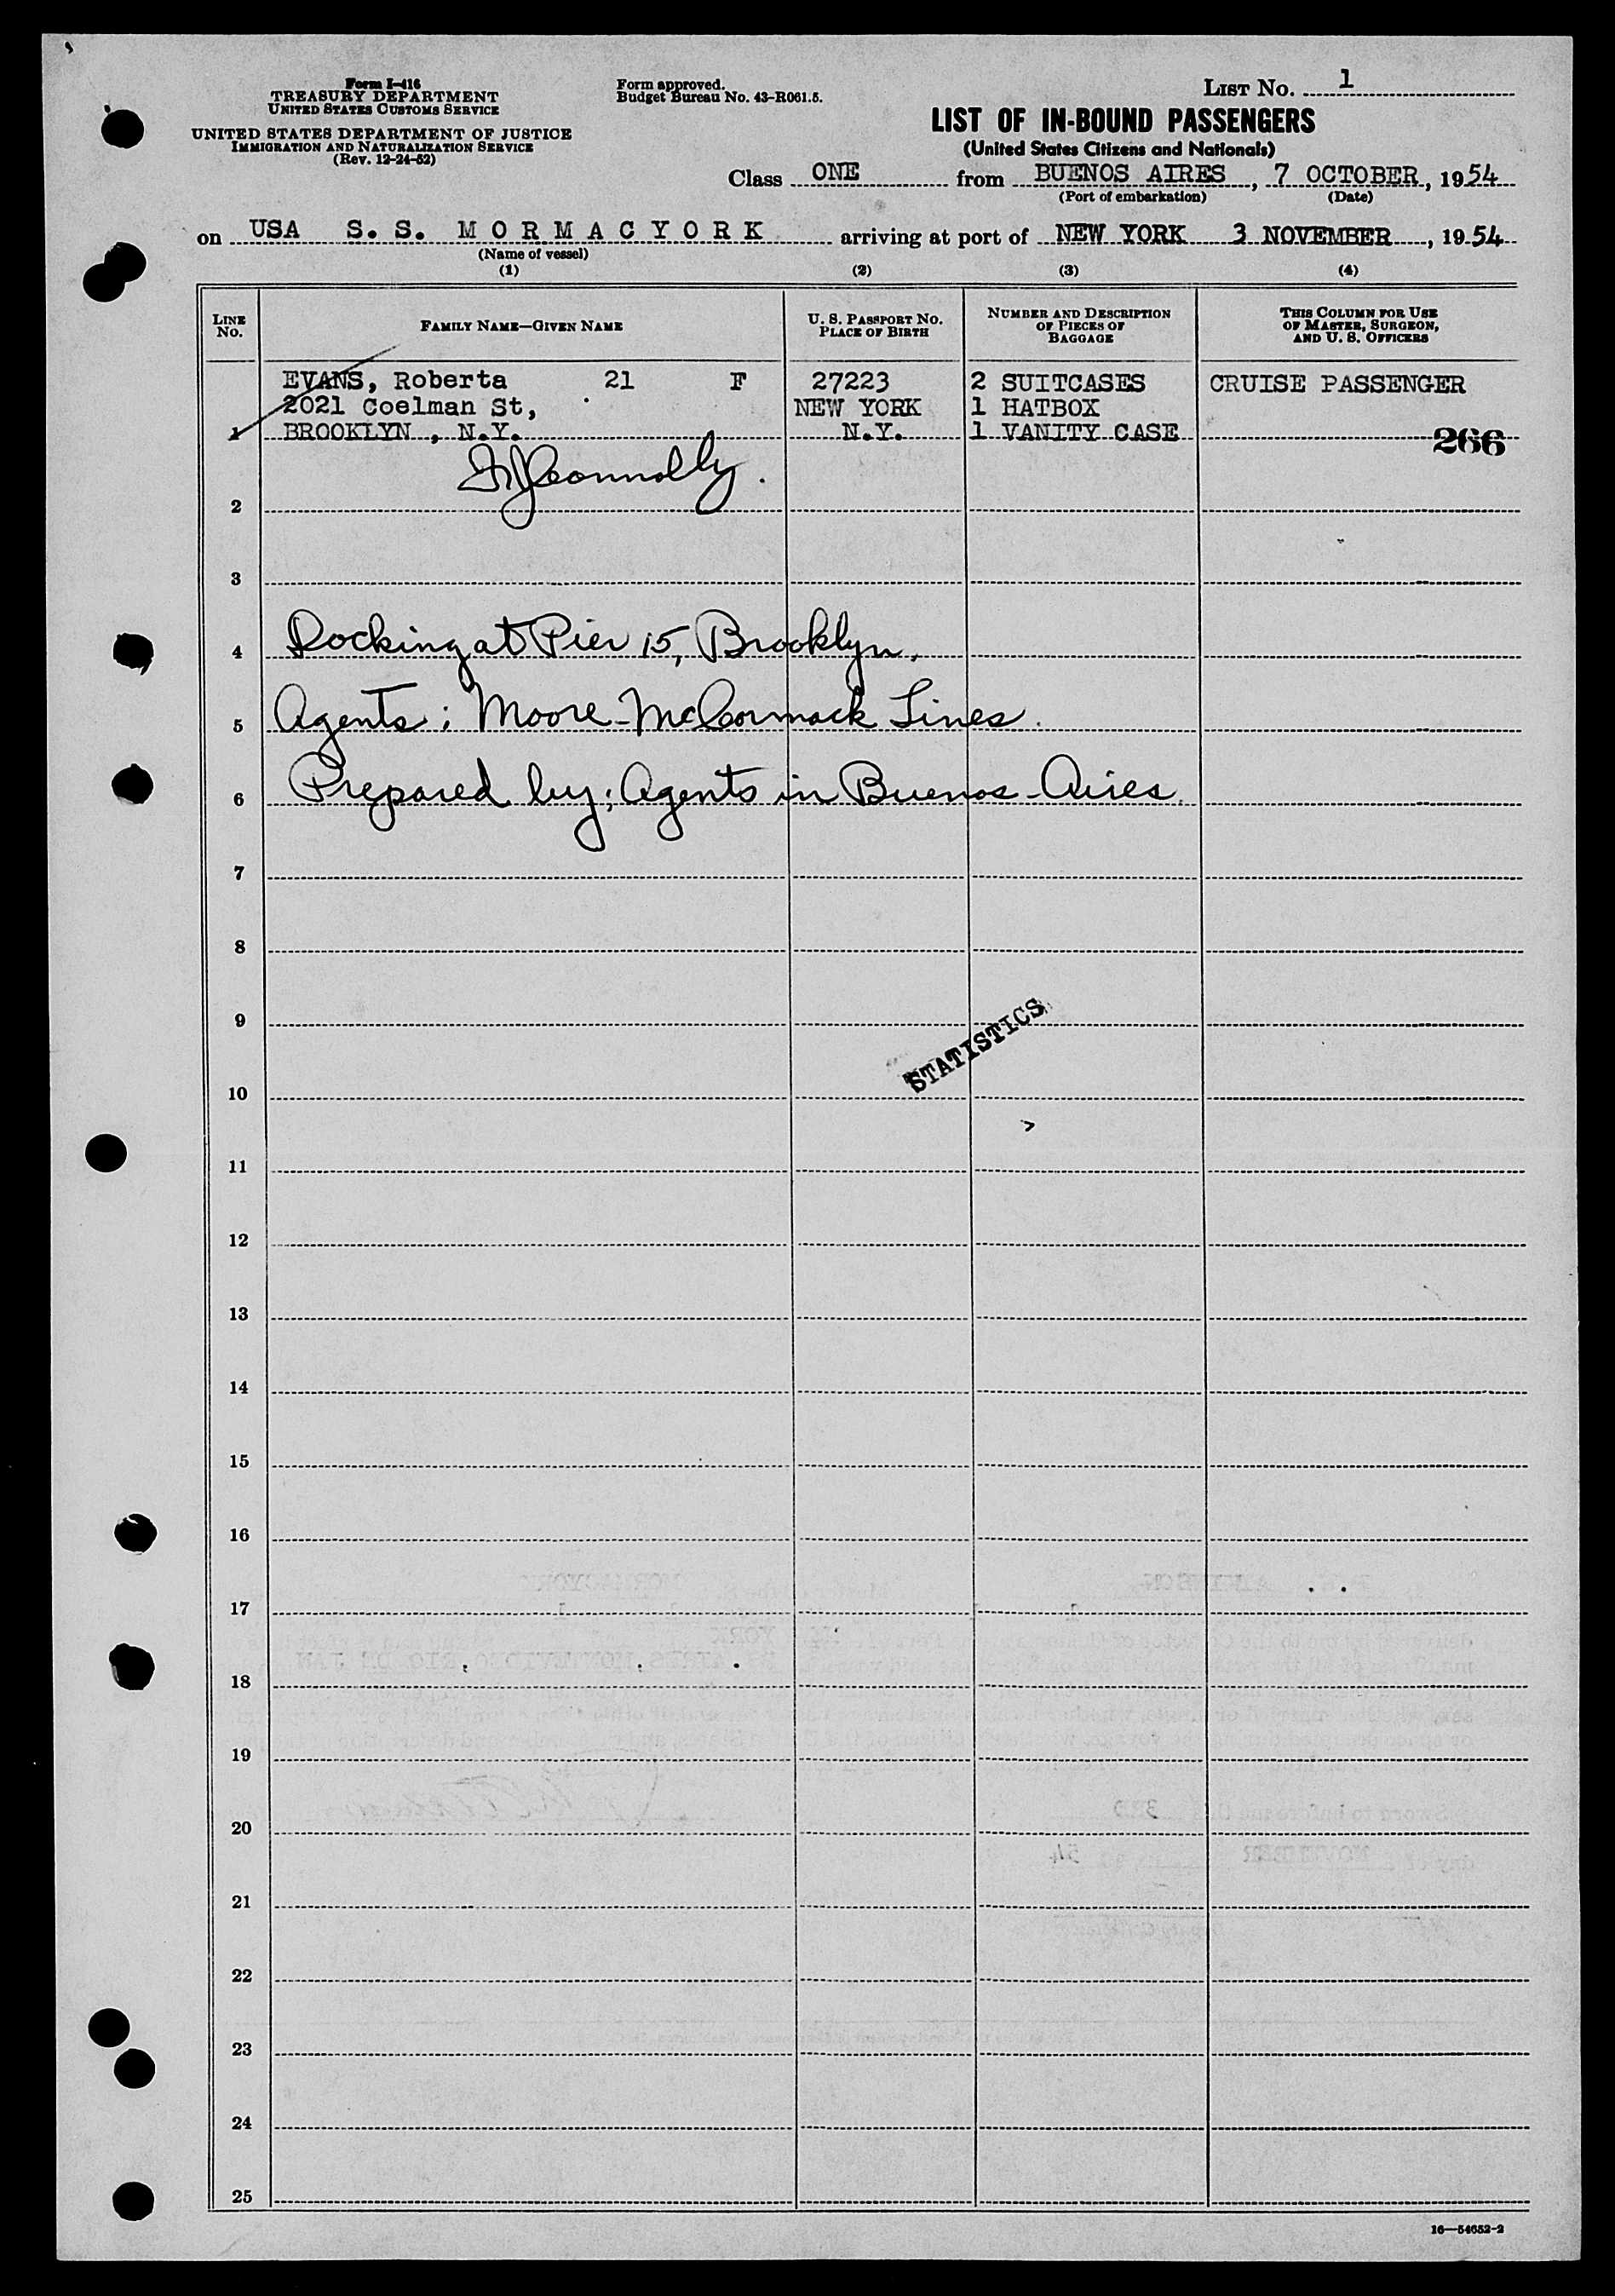 Form I-416
TREASURY DEPARTMENT
UNITED STATES CUSTOMS SERVICE
UNITED STATES DEPARTMENT OF JUSTICE
IMMIGRATION AND NATURALIZATION SERVICE
(Rev. 12-24-52)
Form approved.
Budget Bureau No. 43-R061.5.
LIST NO. 1
LIST OF IN-BOUND PASSENGERS
(United States Citizens and Nationals)
Class ONE from BUENOS AIRES, 7 OCTOBER, 1954
(Port of embarkation) (Date)
on USA S. S. M O R M A C Y O R K arriving at port of NEW YORK 3 NOVEMBER, 1954
(Name of vessel)
(1) (2) (3) (4)
LINE NO. FAMILY NAME—GIVEN NAME U. S. PASSPORT NO. PLACE OF BIRTH NUMBER AND DESCRIPTION OF PIECES OF BAGGAGE THIS COLUMN FOR USE OF MASTER, SURGEON, AND U. S. OFFICERS
EVANS, Roberta 21 F 27223 2 SUITCASES CRUISE PASSENGER
2021 Coelman St, NEW YORK 1 HATBOX
1 BROOKLYN , N.Y. N.Y. 1 VANITY CASE 266
Connolly.
2
3
4 Docking at Pier 15, Brooklyn.
5 Agents: Moore-McCormack Lines.
6 Prepared by: Agents in Buenos-Aires.
7
8
9
STATISTICS
10
11
12
13
14
15
16
17
18
19
20
21
22
23
24
25
16—54652-2